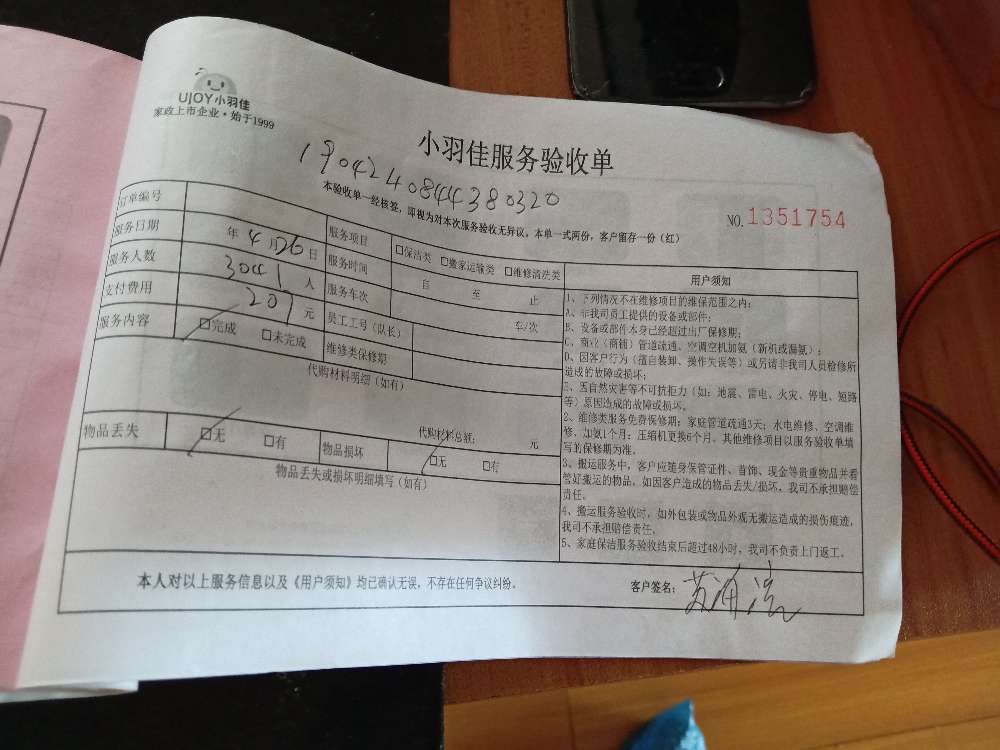 UJOY小羽佳
家政上市企业·始于1999
小羽佳服务验收单
190424084438 0320
本验收单一经核签，即视为对本次服务验收无异议，本单一式两份，客户留存一份（红）
NO.1351754
订单编号
服务日期 年4月26日 服务项目 □保洁类 □搬家运输类 □维修清洗类
服务人数 3041人 服务时间 自 至 止
支付费用 207元 服务车次 车/次
服务内容 □完成 □未完成 员工工号（队长）
维修类保修期
代购材料明细（如有）
代购材料总额： 元
物品丢失 □无 □有 物品损坏 □无 □有
物品丢失或损坏明细填写（如有）
用户须知
1、下列情况不在维修项目的维保范围之内：
A、非我司员工提供的设备或部件；
B、设备或部件本身已经超过出厂保修期；
C、商业（商铺）管道疏通、空调空机加氨（新机或漏氨）；
D、因客户行为（擅自装卸、操作失误等）或另请非我司人员检修所
造成的故障或损坏；
E、因自然灾害等不可抗拒力（如：地震、雷电、火灾、停电、短路
等）原因造成的故障或损坏。
2、维修类服务免费保修期：家庭管道疏通3天；水电维修、空调维
修、加氨1个月；压缩机更换6个月。其他维修项目以服务验收单填
写的保修期为准。
3、搬运服务中，客户应随身保管证件、首饰、现金等贵重物品并看
管好搬运的物品。如因客户造成的物品丢失/损坏，我司不承担赔偿
责任。
4、搬运服务验收时，如外包装或物品外观无搬运造成的损伤痕迹，
我司不承担赔偿责任。
5、家庭保洁服务验收结束后超过48小时，我司不负责上门返工。
本人对以上服务信息以及《用户须知》均已确认无误，不存在任何争议纠纷。
客户签名：苏